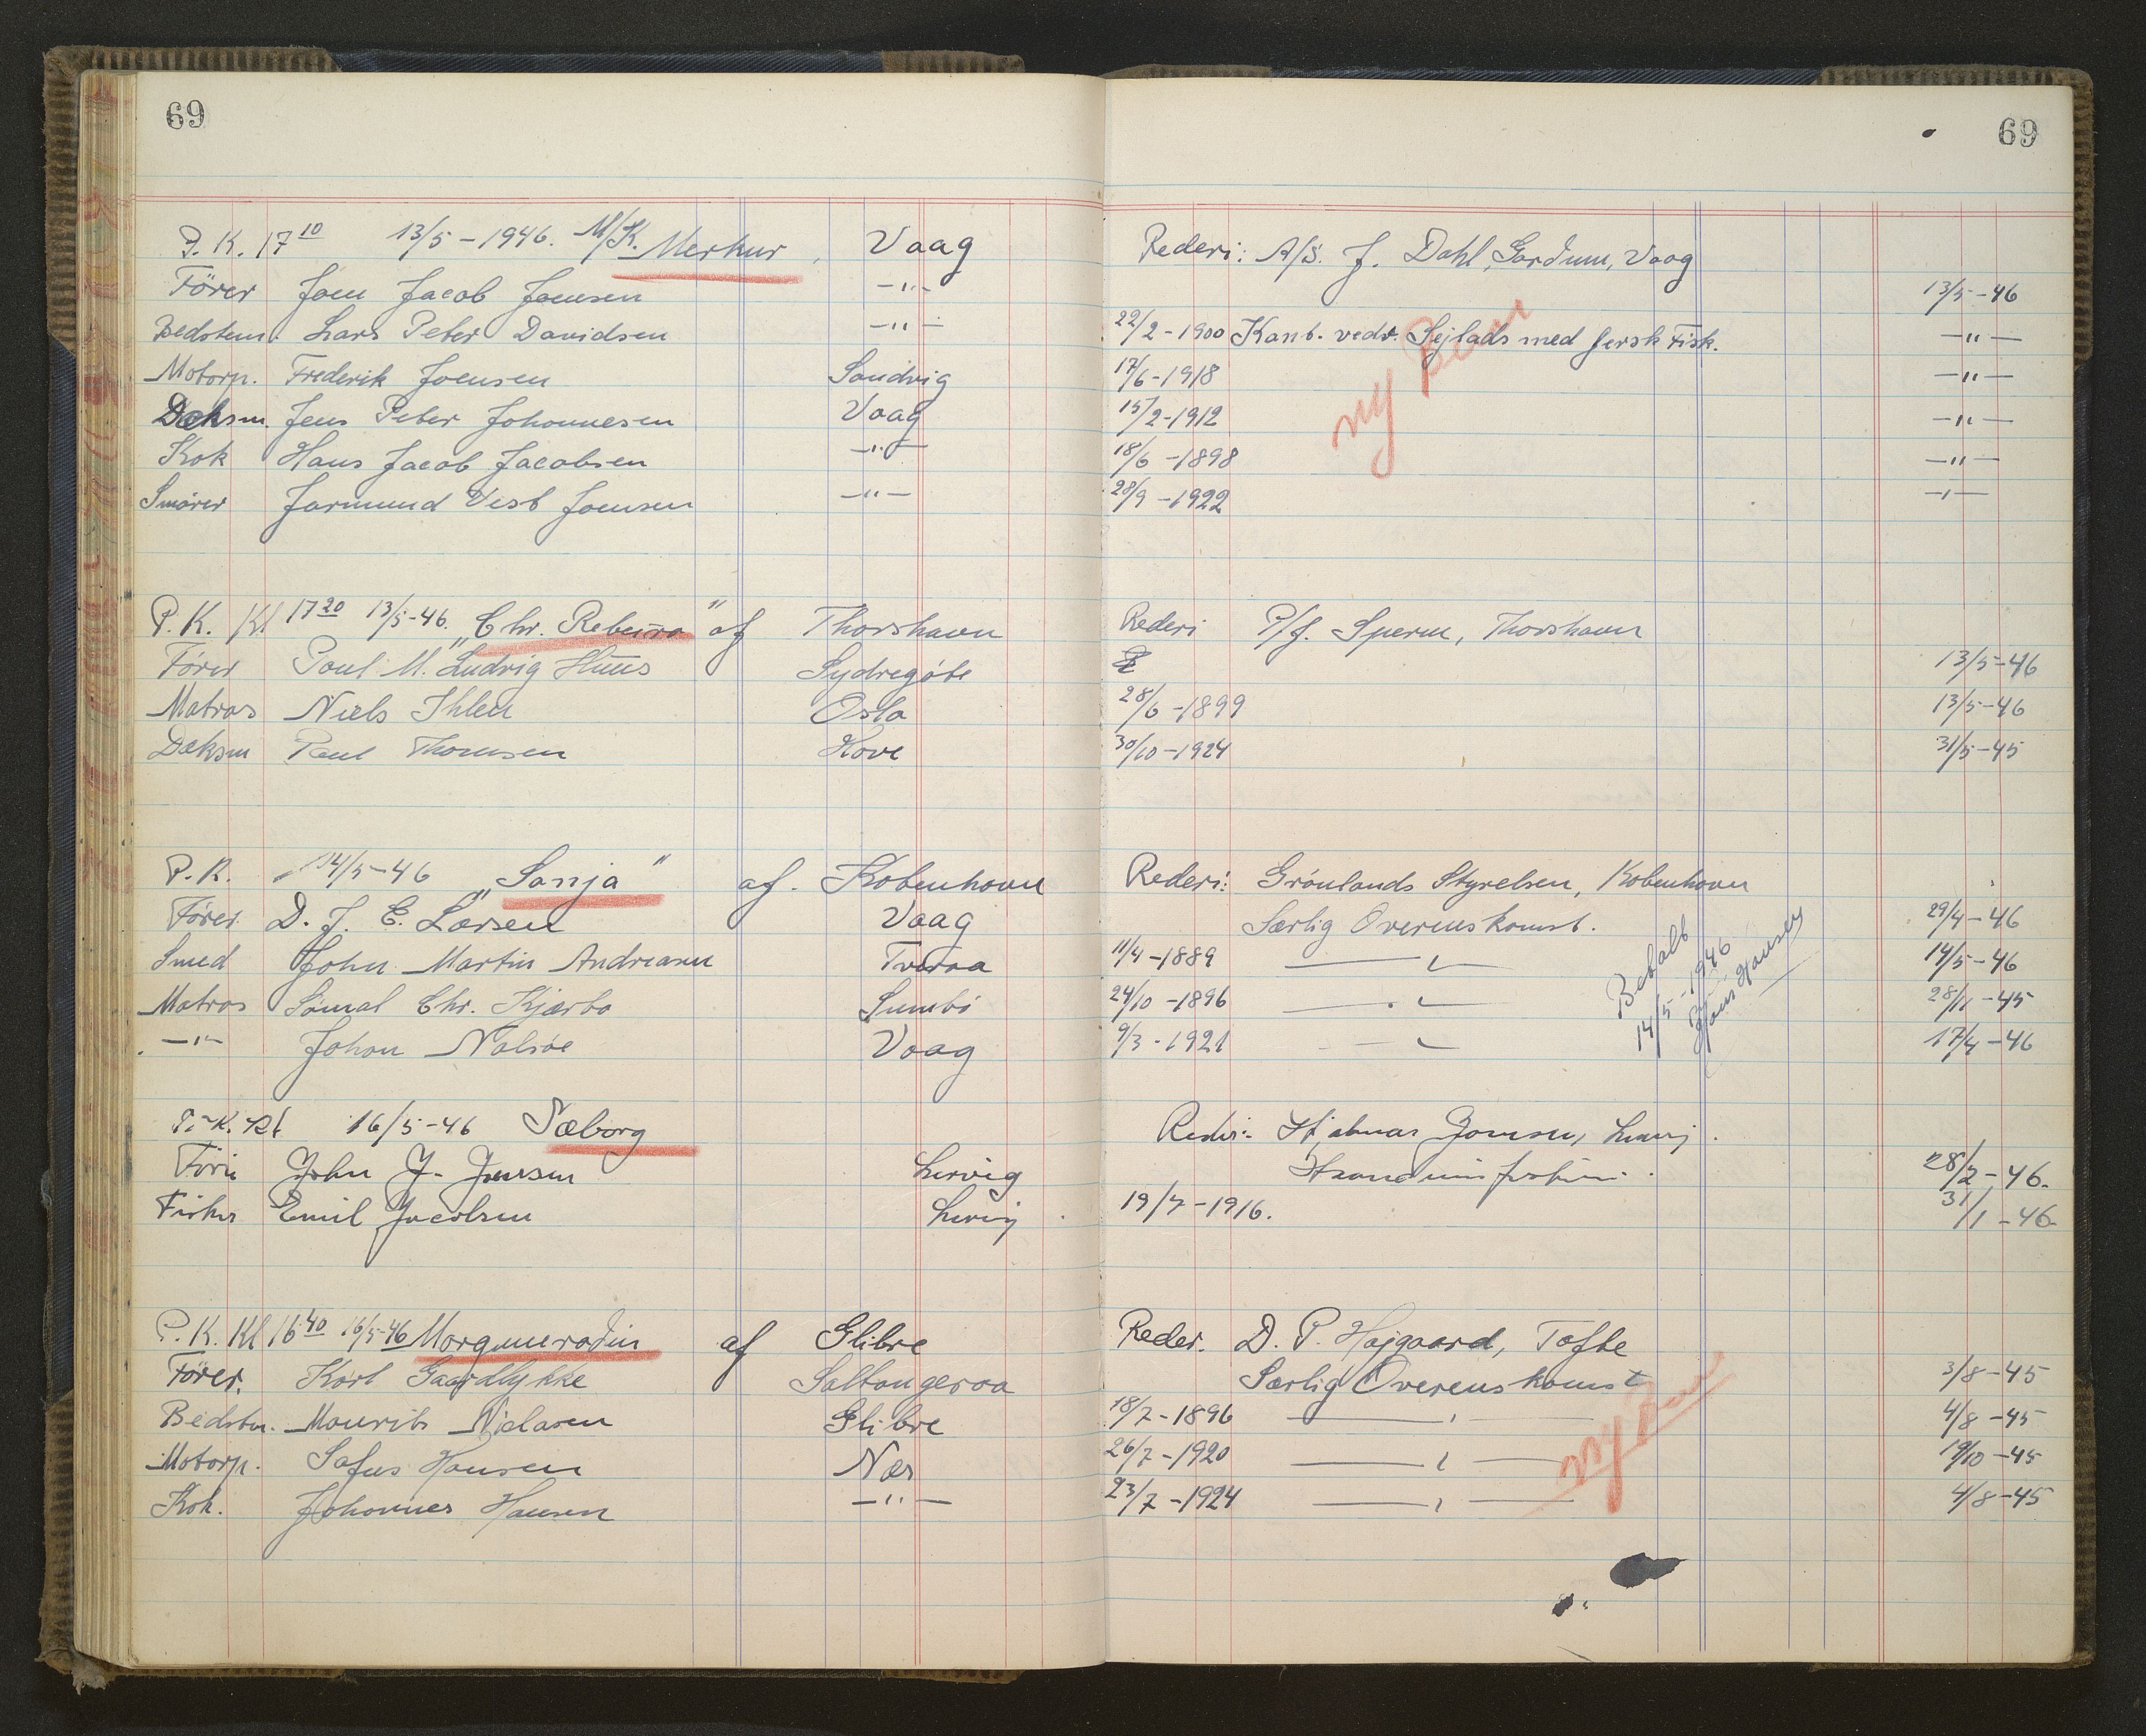 69
69
P. K. 17 10 13/5-1946. M/K. Merkur, Vaag Rederi: A/S. J. Dahl, Gardum, Vaag
Förer Joen Jacob Joensen -"- 13/5-46
Bedstem. Lars Peter Davidsen -"- 22/2-1900 Kont. vedr. Sejlads med fersk Fisk. -"-
Motorp. Frederik Joensen Sandvig 17/6-1918 -"-
Dæksm. Jens Peter Johannesen Vaag 15/2-1912 -"-
Kok Hans Jacob Jacobsen -"- 18/6-1898 -"-
Smörer Jarmund Vest Joensen -"- 28/9-1922 -"-
ny
P. K. Kl 17 20 13/5-46. "Chr. Rebekka" af Thorshavn Rederi P/f. Sperm, Thorshavn
Förer Poul M. Ludvig Huus Sydregöte 13/5-46
Matros Niels Ihlen Oslo 28/6-1899 13/5-46
Dæksm Poul Thomsen Hove 30/10-1924 31/5-45
P. K. 14/5-46 "Sonja" af. Kobenhavn Rederi: Grönlands Styrelsen, Kobenhavn
Förer D. J. E. Larsen Vaag Særlig Overenskomst. 29/4-46
Smed John Martin Andreasen Tveraa 11/4-1889 —"— 14/5-46
Matros Sämal Chr. Kjærbo Sumbö 24/10-1896 —"— 28/11-45
-"- Johan Nolsöe Vaag 9/3-1921 —"— 17/4-46
Betalt
14/5-1946
Hans Hansen
P. K. Kl. 16/5-46 Sæborg Rederi: Hjalmar Joensen, Lervig.
Förer John J. Joensen Lervig 28/2-46.
Fisker Emil Jacobsen Lervig 19/7-1916. 31/1-46
P. K. Kl 16 40 16/5-46 Morgunrodin af Glibre Reder. D. P. Højgaard, Tofte
Förer. Karl Gaardlykke Saltangeraa Særlig Overenskomst 3/8-45
Bedstm. Mourits Niclasen Glibre 18/7-1896 —"— 4/8-45
Motorp. Sofus Hansen Næs 26/7-1920 —"— 19/10-45
Kok. Johannes Hansen -"- 23/7-1924 —"— 4/8-45
ny